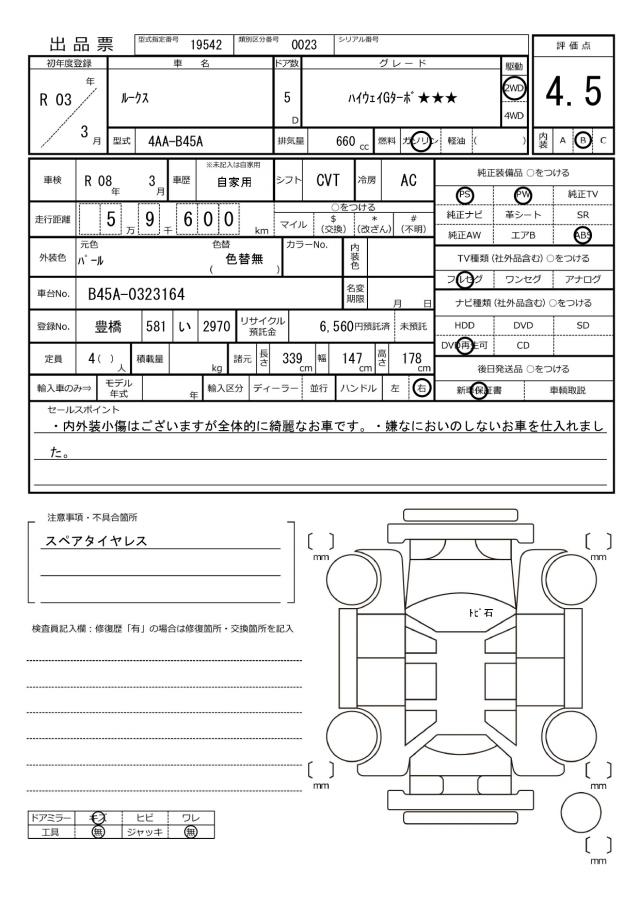 出品票 型式指定番号 19542 類別区分番号 0023 シリアル番号
評価点
初年度登録 車名 ドア数 グレード 駆動
R 03 年 ルークス 5 D ハイウェイGターボ★★★ 2WD 4.5
4WD
3 月 型式 4AA-B45A 排気量 660 cc 燃料 ガソリン 軽油 ( ) 内装 A B C
車検 R 08 年 3 月 車歴 ※未記入は自家用 自家用 シフト CVT 冷房 AC
純正装備品 ○をつける
PS PW 純正TV
走行距離 5 万 9 千 6 0 0 km ○をつける
マイル $(交換) *(改ざん) #(不明)
純正ナビ 革シート SR
純正AW エアB ABS
外装色 元色 パール 色替 ( 色替無 ) カラーNo. 内装色
TV種類 (社外品含む) ○をつける
フルセグ ワンセグ アナログ
車台No. B45A-0323164 名変期限 月 日
ナビ種類 (社外品含む) ○をつける
登録No. 豊橋 581 い 2970 リサイクル預託金 6,560 円預託済 未預託
HDD DVD SD
DVD再生可 CD
定員 4 ( ) 人 積載量 kg 諸元 長さ 339 cm 幅 147 cm 高さ 178 cm
後日発送品 ○をつける
輸入車のみ⇒ モデル年式 年 輸入区分 ディーラー 並行 ハンドル 左 右
新車保証書 車輌取説
セールスポイント
・内外装小傷はございますが全体的に綺麗なお車です。・嫌なにおいのしないお車を仕入れまし
た。
注意事項・不具合箇所
スペアタイヤレス
〔 〕 mm
〔 〕 mm
トビ石
検査員記入欄：修復歴「有」の場合は修復箇所・交換箇所を記入
〔 〕 mm
〔 〕 mm
ドアミラー キズ ヒビ ワレ
工具 無 ジャッキ 無
〔 〕 mm